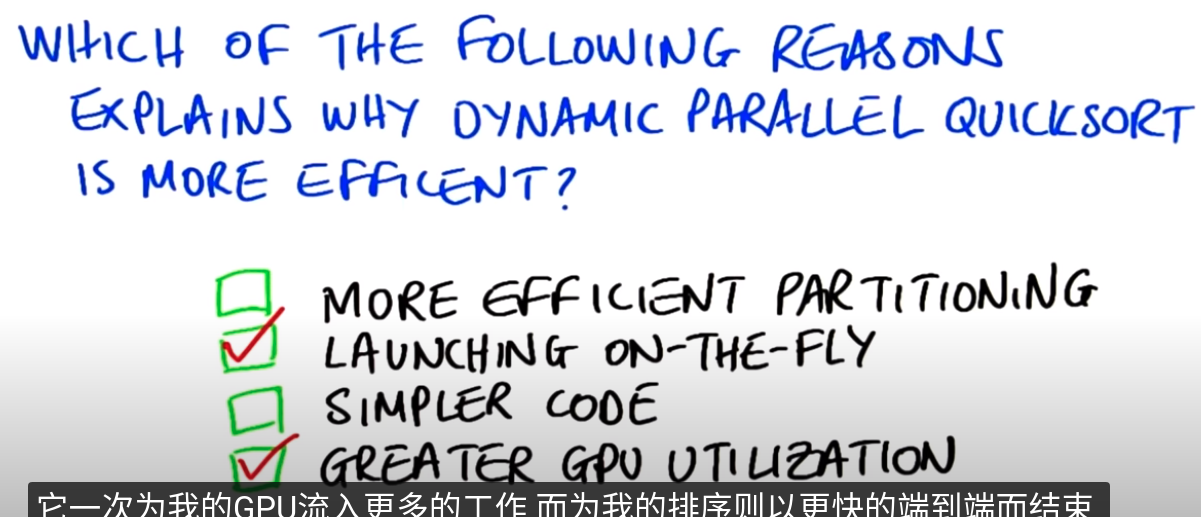 WHICH OF THE FOLLOWING REASONS
EXPLAINS WHY DYNAMIC PARALLEL QUICKSORT
IS MORE EFFICENT?
MORE EFFICIENT PARTITIONING
LAUNCHING ON-THE-FLY
SIMPLER CODE
GREATER GPU UTILIZATION
它一次为我的GPU流入更多的工作 而为我的排序则以更快的端到端而结束